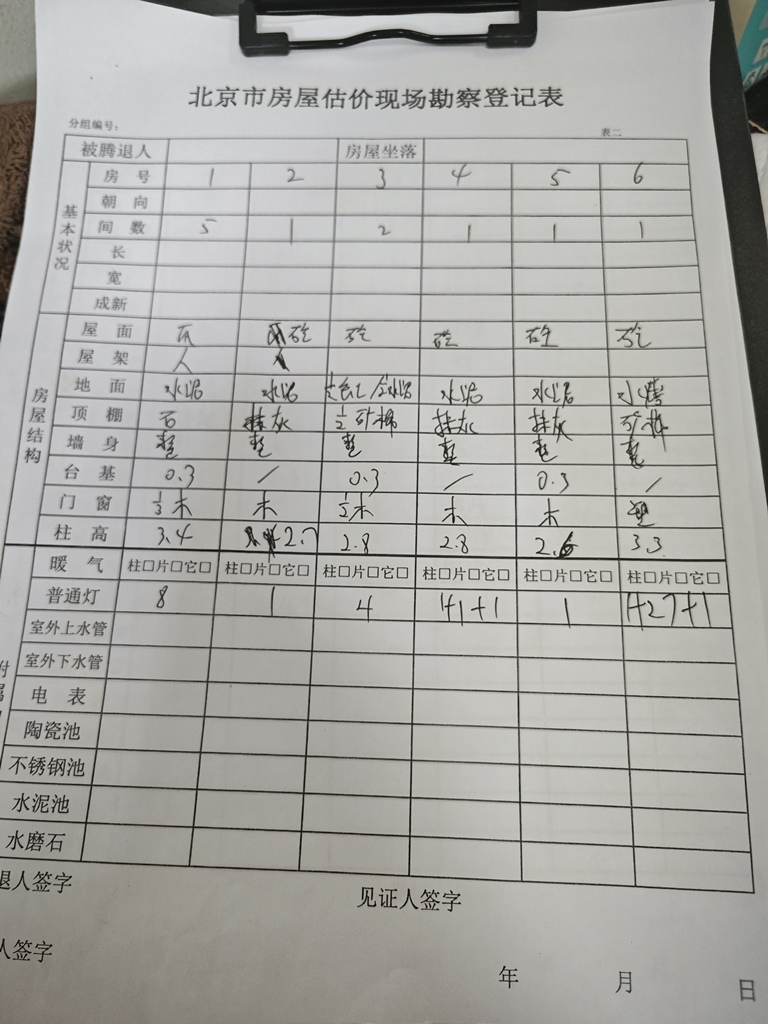 北京市房屋估价现场勘察登记表
分组编号： 表二
被腾退人 房屋坐落
基本状况
房号 1 2 3 4 5 6
朝向
间数 5 1 2 1 1 1
长
宽
成新
房屋结构
屋面 瓦 砼 砼 砼 砼 砼
屋架 人
地面 水泥 水泥 1/2水泥 水泥 水泥
顶棚 石 抹灰 1/2矿棉 抹灰 抹灰 矿棉
墙身 整 整 整 整 整 整
台基 0.3 / 0.3 / 0.3 /
门窗 木 木 1/2木 木 木 塑
柱高 3.4 2.7 2.8 2.8 2.6 3.3
暖气 柱□片□它□ 柱□片□它□ 柱□片□它□ 柱□片□它□ 柱□片□它□ 柱□片□它□
普通灯 8 1 4 1+1+1 1 1+27+1
室外上水管
室外下水管
电表
陶瓷池
不锈钢池
水泥池
水磨石
退人签字 见证人签字
人签字
年 月 日